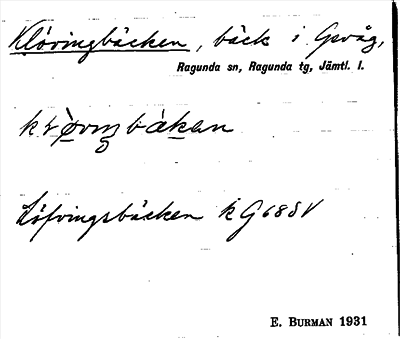 Klövingbäcken, bäck i Gevåg,
Ragunda sn, Ragunda tg, Jämtl. l.
Löfvingsbäcken k G 68 SV
E. BURMAN 1931